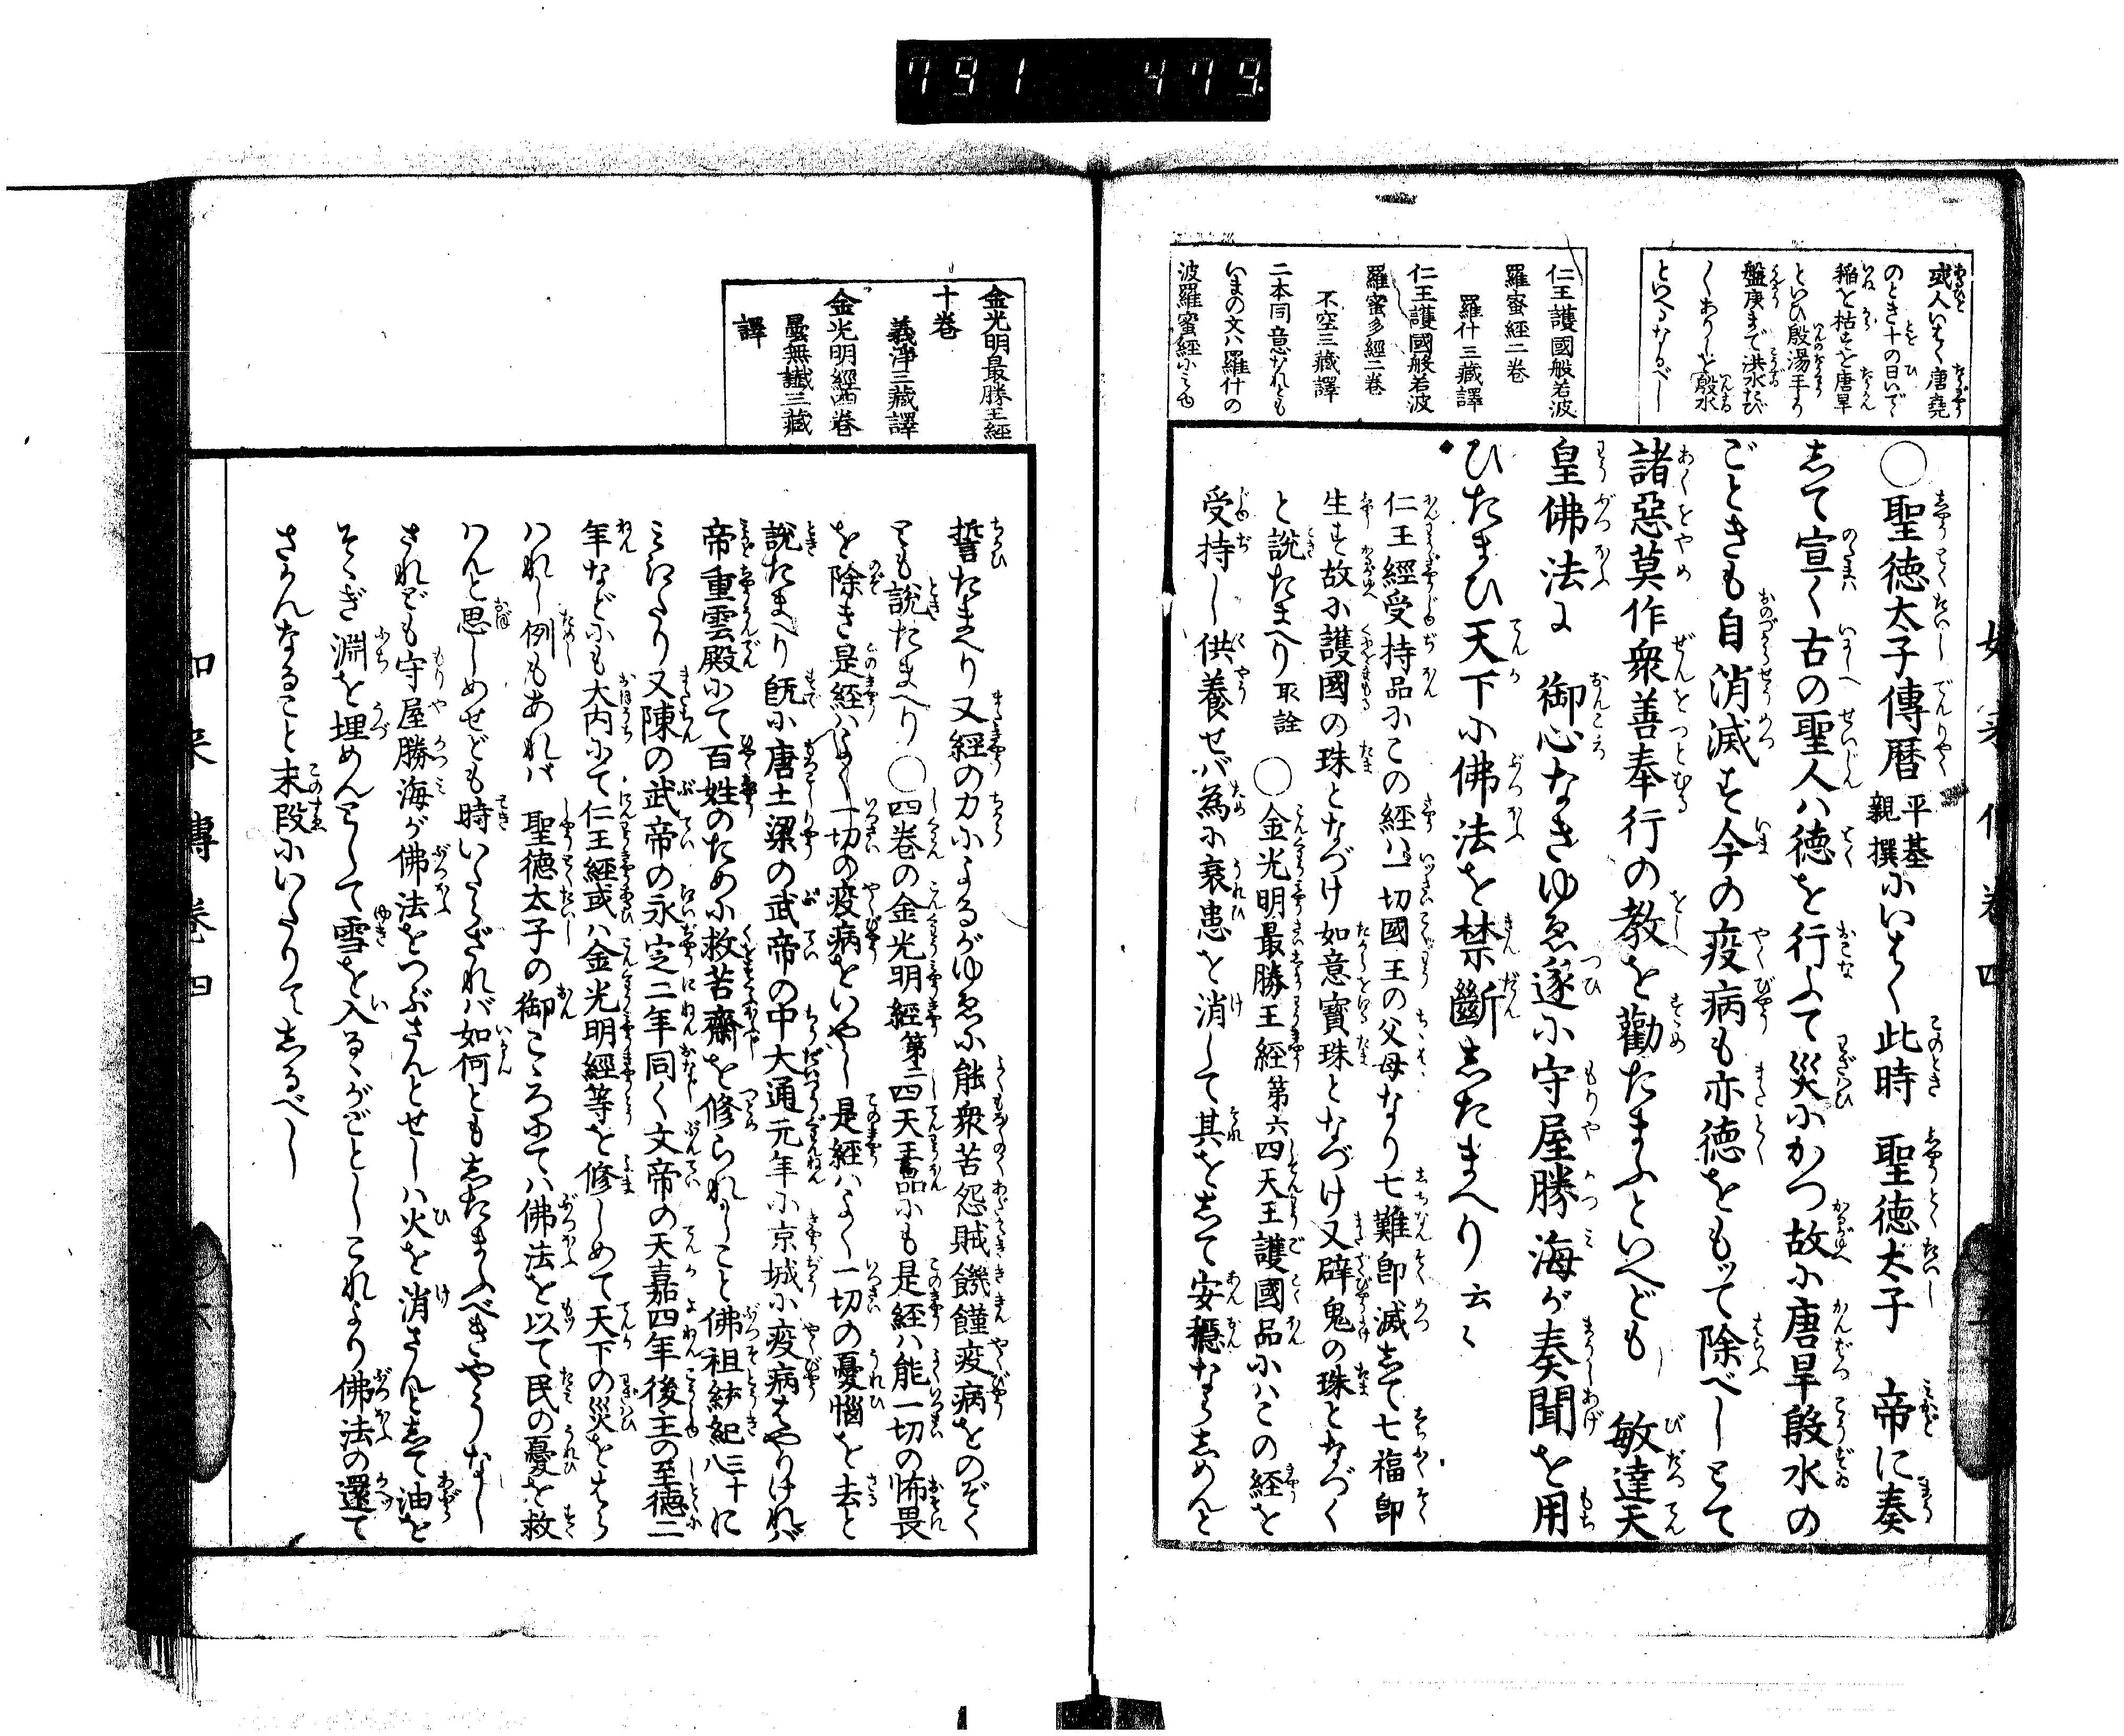 791 479
或人いはく唐堯
のとき十の日いで
稲を枯すを唐旱
といひ殷湯王より
盤庚まで洪水たび
〱ありしを殷水
といへるなるべし
仁王護國般若波
羅蜜經二卷
羅什三藏譯
仁王護國般若波
羅蜜多經二卷
不空三藏譯
二本同意なれとも
いまの文ハ羅什の
波羅蜜經にミゆ
○聖徳太子傳暦平基親撰にいはく此時 聖徳太子 帝に奏
して宣く古の聖人ハ徳を行ふて災にかつ故に唐旱殷水の
ごときも自消滅す今の疫病も亦徳をもッて除べしとて
諸惡莫作衆善奉行の教を勸たまふといへども 敏達天
皇佛法に 御心なきゆゑ遂に守屋勝海が奏聞を用
ひたまひ天下に佛法を禁斷したまへり云々
仁王經受持品にこの經ハ一切國王の父母なり七難即滅して七福即
生す故に護國の珠となづけ如意寶珠となづけ又辟鬼の珠となづく
と説たまへり取詮 ○金光明最勝王經第六四天王護國品にハこの経を
受持し供養せバ為に衰患を消して其をして安穏ならしめんと
金光明最勝王經
十卷
義淨三藏譯
金光明經四卷
曇無讖三藏
譯
誓たまへり又経の力によるがゆゑに能衆苦怨賊饑饉疫病をのぞく
とも説たまへり○四卷の金光明經第二四天王品にも是経ハ能一切の怖畏
を除き是経ハよく一切の疫病をいやし是経ハよく一切の憂惱を去と
説たまへり既に唐土梁の武帝の中大通元年に京城に疫病はやりけれバ
帝重雲殿にて百姓のために救苦齋を修られしこと佛祖統紀三十八に
みえたり又陳の武帝の永定二年同く文帝の天嘉四年後主の至徳二
年などにも大内にて仁王經或ハ金光明經等を修しめて天下の災をはら
ハれし例もあれバ 聖徳太子の御こゝろにてハ佛法を以て民の憂を救
ハんと思しめせども時いたらざれバ如何ともしたまふべきやうなし
されども守屋勝海が佛法をつぶさんとせしハ火を消さんとして油を
そゝぎ淵を埋めんとして雪を入るゝがごとしこれより佛法の還て
さかんなること末段にいたりてしるべし
如来傳卷四